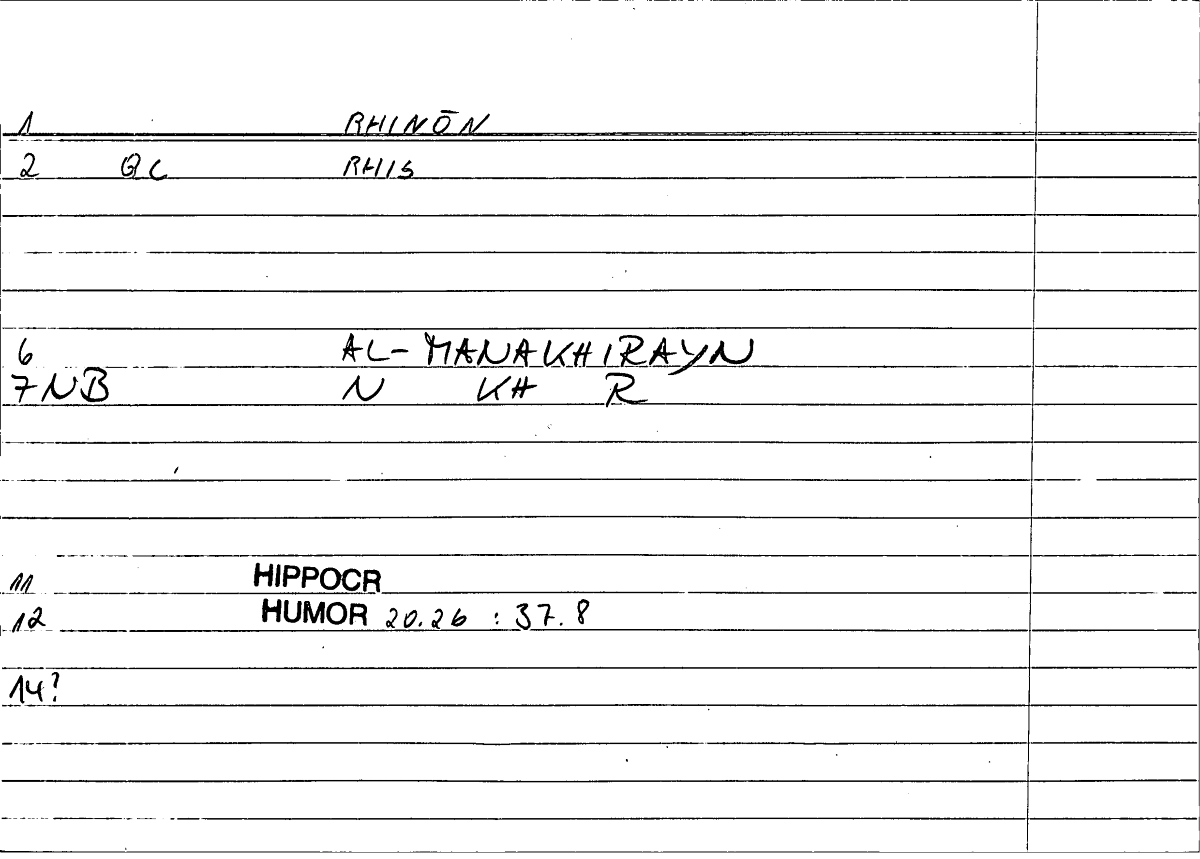 1 RHINŌN
2 QC RHIS
6 AL-MANAKHIRAYN
7NB N KH R
11 HIPPOCR
12 HUMOR 20.26 : 37.8
14?